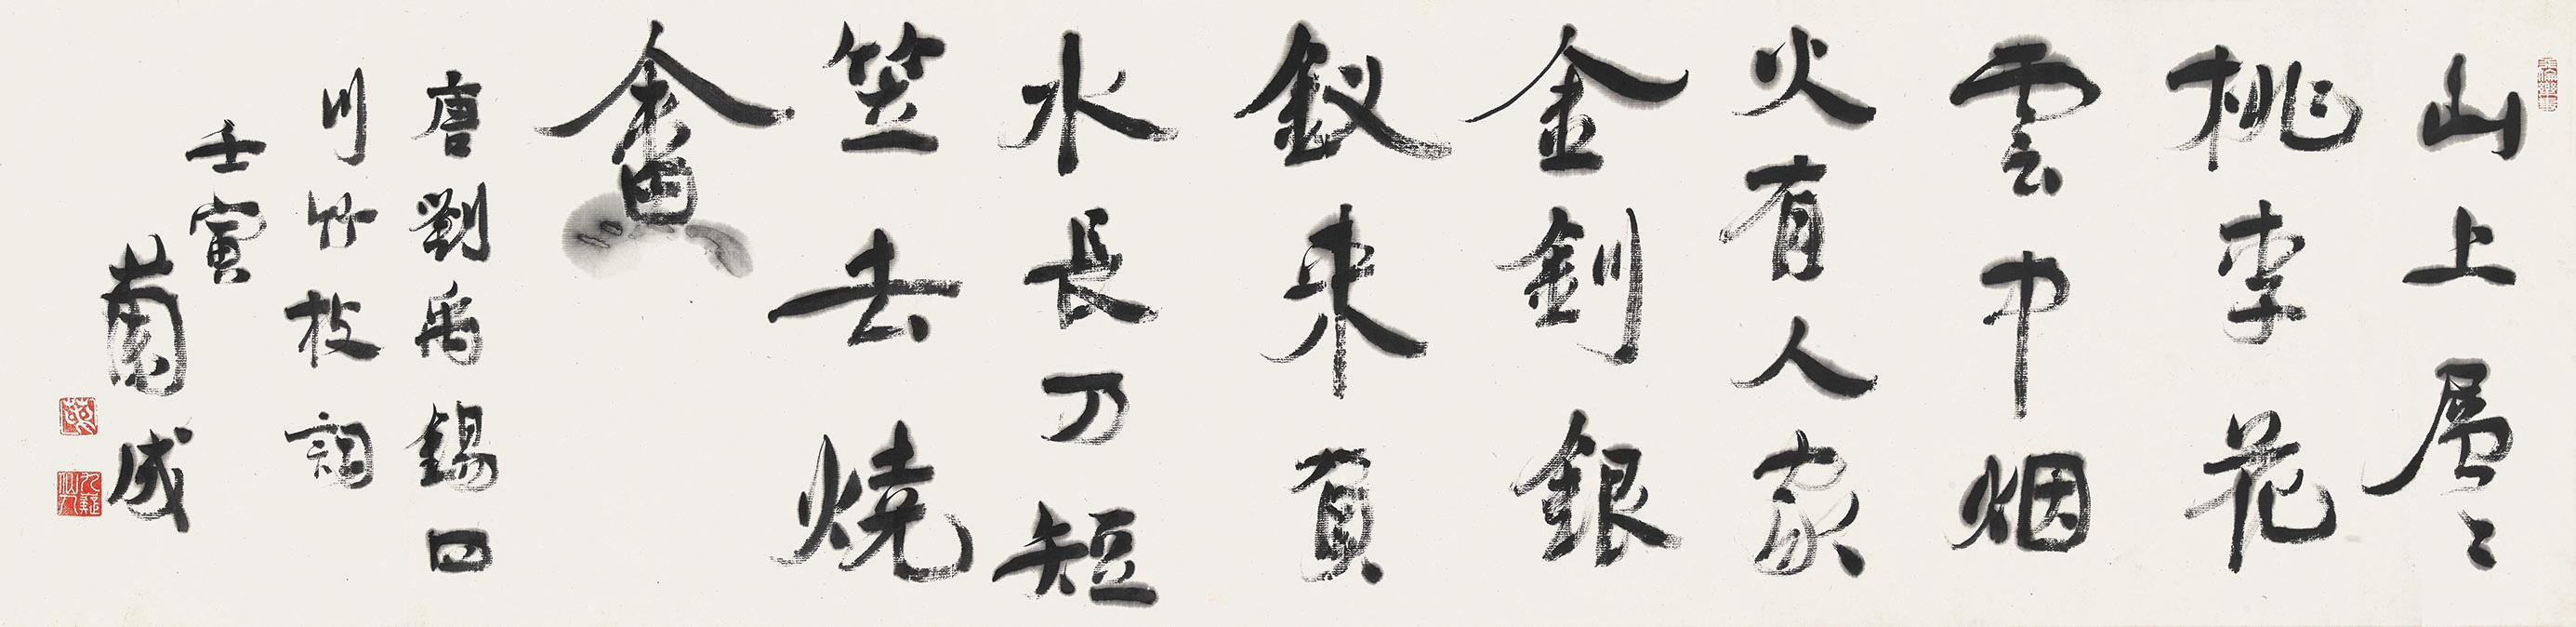 山上層〻
桃李花
雲中烟
火有人家
金釧銀
釵來負
水長刀短
笠去燒
畬
唐劉禹錫四
川竹枝詞
壬寅
蘭成